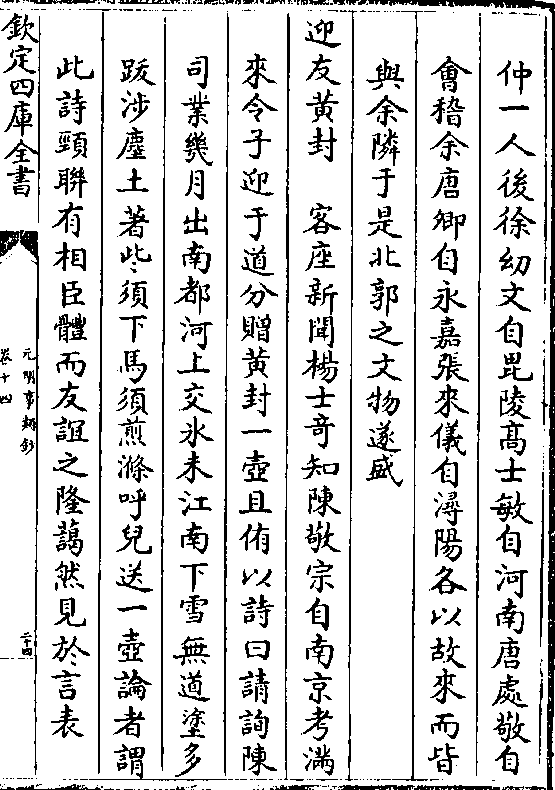 仲一人後徐幼文自毘陵髙士敏自河南唐處敬自
會稽余唐卿自永嘉張來儀自潯陽各以故來而皆
與余隣于是北郭之文物遂盛
迎友黄封　客座新聞楊士竒知陳敬宗自南京考滿
來令子迎于道分贈黄封一壺且侑以詩曰請詢陳
司業幾月出南都河上交氷未江南下雪無道塗多
跋渉塵土著些須下馬須煎滌呼兒送一壺論者謂
此詩頸聯有相臣體而友誼之隆藹然見於言表
欽定四庫全書
元明事類鈔
卷十四
二十四